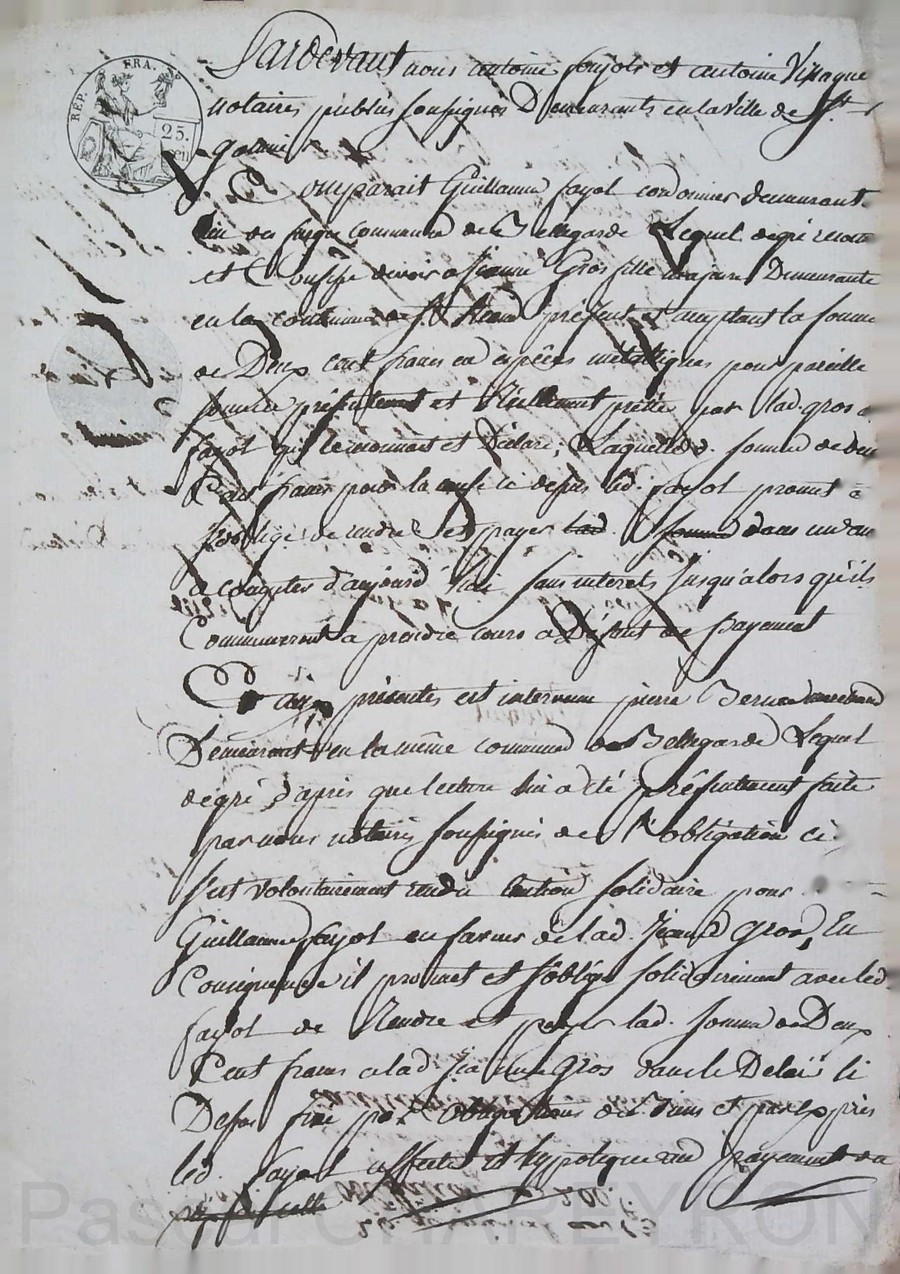 RÉP. FRA.
25.
CEN
Pardevant nous antoine foujols et antoine Vissaque
notaires publics soussignés Demeurants en la ville de St.
galmier
Comparait Guillaume fayol cordonnier demeurant
commune de Bellegarde Lequel de gré reconnait
et Confesse devoir a jeanne Gros fille majeure Demeurante
en la commune de St Héand présente et acceptant la somme
de Deux cent francs en espèces métalliques pour pareille
somme présentement et Réellement prêtée par lad. gros a
fayol qui le reconnait et Déclare, Laquelle d. somme de deux
Cent francs pour la cause ci dessus led. fayol promet &
s'oblige de rendre et payer lad. somme dans un an
a compter d'aujourd'hui sans interets jusqu'alors qu'ils
Commenceront a prendre cours a Défaut de payement
Et aux présentes est intervenu pierre Bernard
Demeurant en la même commune de Bellegarde Lequel
de gré, d'après que lecture lui a été présentement faite
par nous notaires soussignés de l'obligation ci
s'est volontairement rendu Caution solidaire pour
Guillaume fayol en faveur de lad. Jeanne gros, En
Conséquence il promet et s'oblige solidairement avec led.
fayol de Rendre et payer lad. somme de Deux
Cent francs a lad. jeanne gros dans le Delai ci
Dessus fixé par obligations des biens et par exprès
led. fayol affecte et hypoteque au payement de
Pascal CHAPEYRON